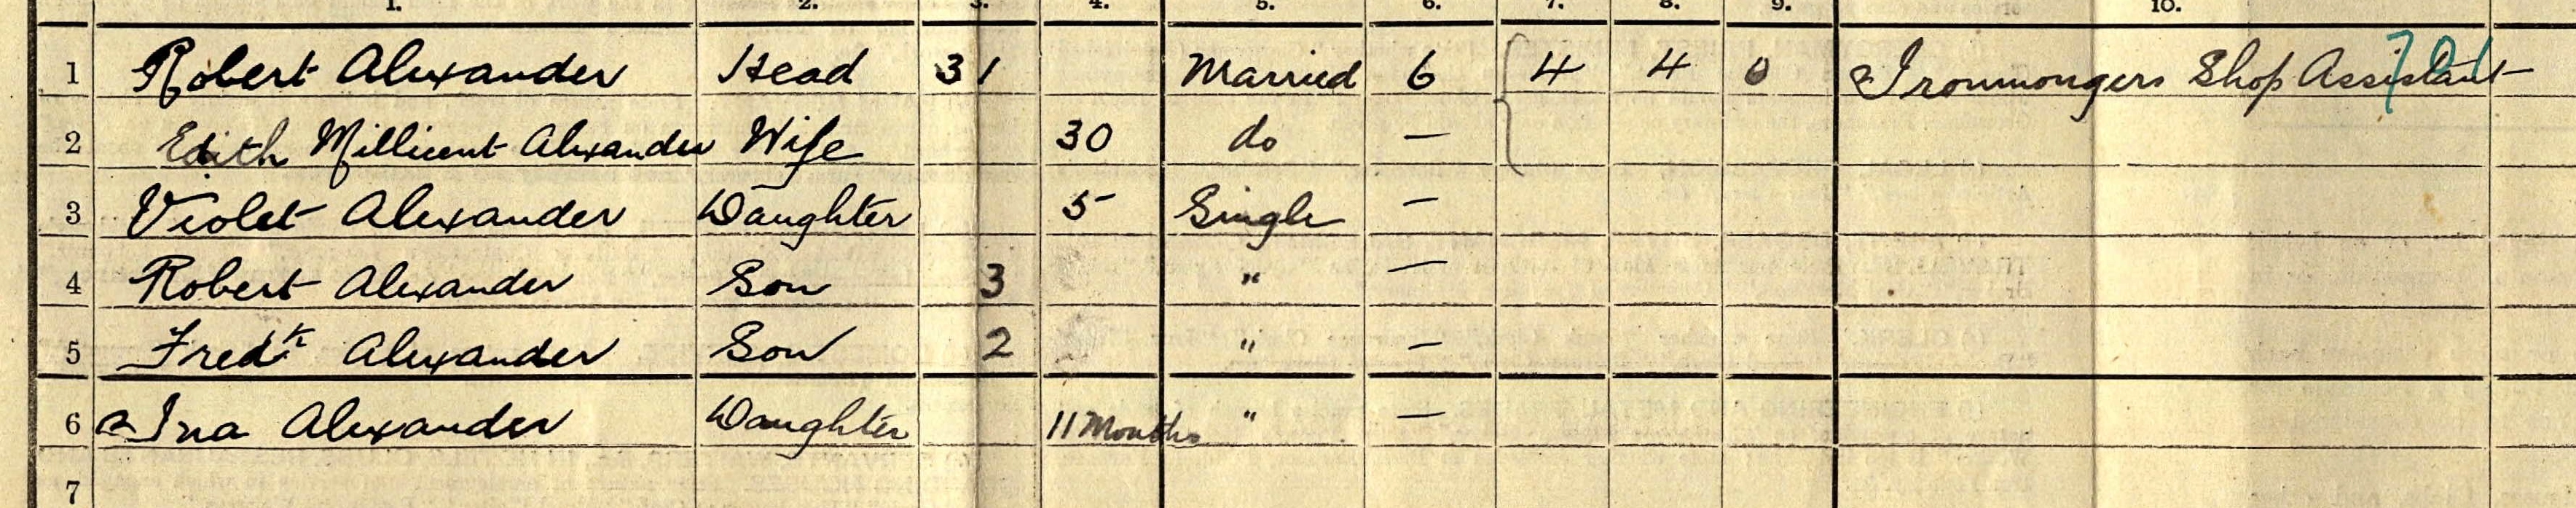 1. 2. 3. 4. 5. 6. 7. 8. 9. 10.
1 Robert Alexander Head 31 Married 6 4 4 0 Ironmongers Shop Assistant 701
2 Edith Millicent Alexander Wife 30 do —
3 Violet Alexander Daughter 5 Single —
4 Robert Alexander Son 3 " —
5 Fredk Alexander Son 2 " —
6 Ina Alexander Daughter 11 Months " —
7